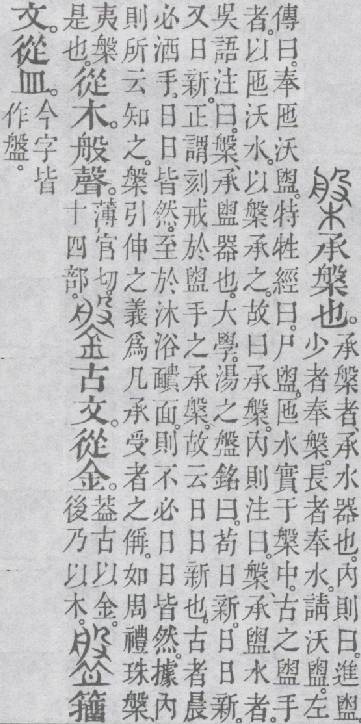 槃承槃也。承槃者承水器也。內則曰。進盥
少者奉槃。長者奉水。請沃盥。左
傳曰。奉匜沃盥。特牲經曰。尸盥匜水實于槃中。古之盥手
者。以匜沃水。以槃承之。故曰承槃。內則注曰。槃、承盥水者。
吳語注曰。槃承盥器也。大學。湯之盤銘曰。苟日新。日日新。
又日新。正謂刻戒於盥手之承槃。故云日日新也。古者晨
必洒手。日日皆然。至於沐浴靧面。則不必日日皆然。據內
則所云知之。槃引伸之義爲凡承受者之偁。如周禮珠槃、
夷槃是也。從木。般聲。薄官切。十四部。鎜古文。從金。葢古以金。後乃以木。盤籒
文。從皿。今字皆作盤。